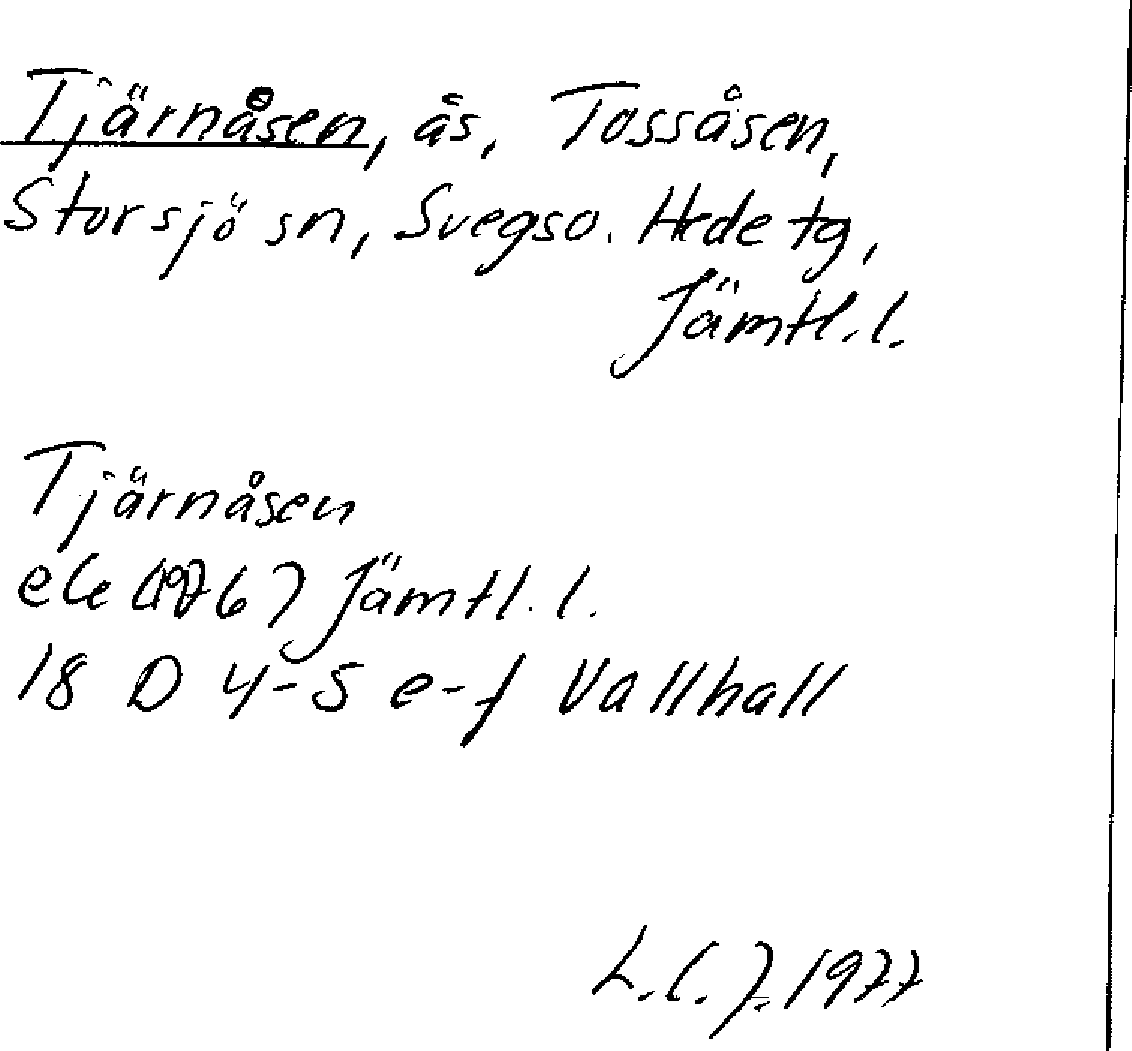 Tjärnåsen, ås, Tossåsen,
Storsjö sn, Svegs o. Hede tg,
Jämtl. l.
Tjärnåsen
ek (1976) Jämtl. l.
18 D 4-5 e-f Vallhall
1977